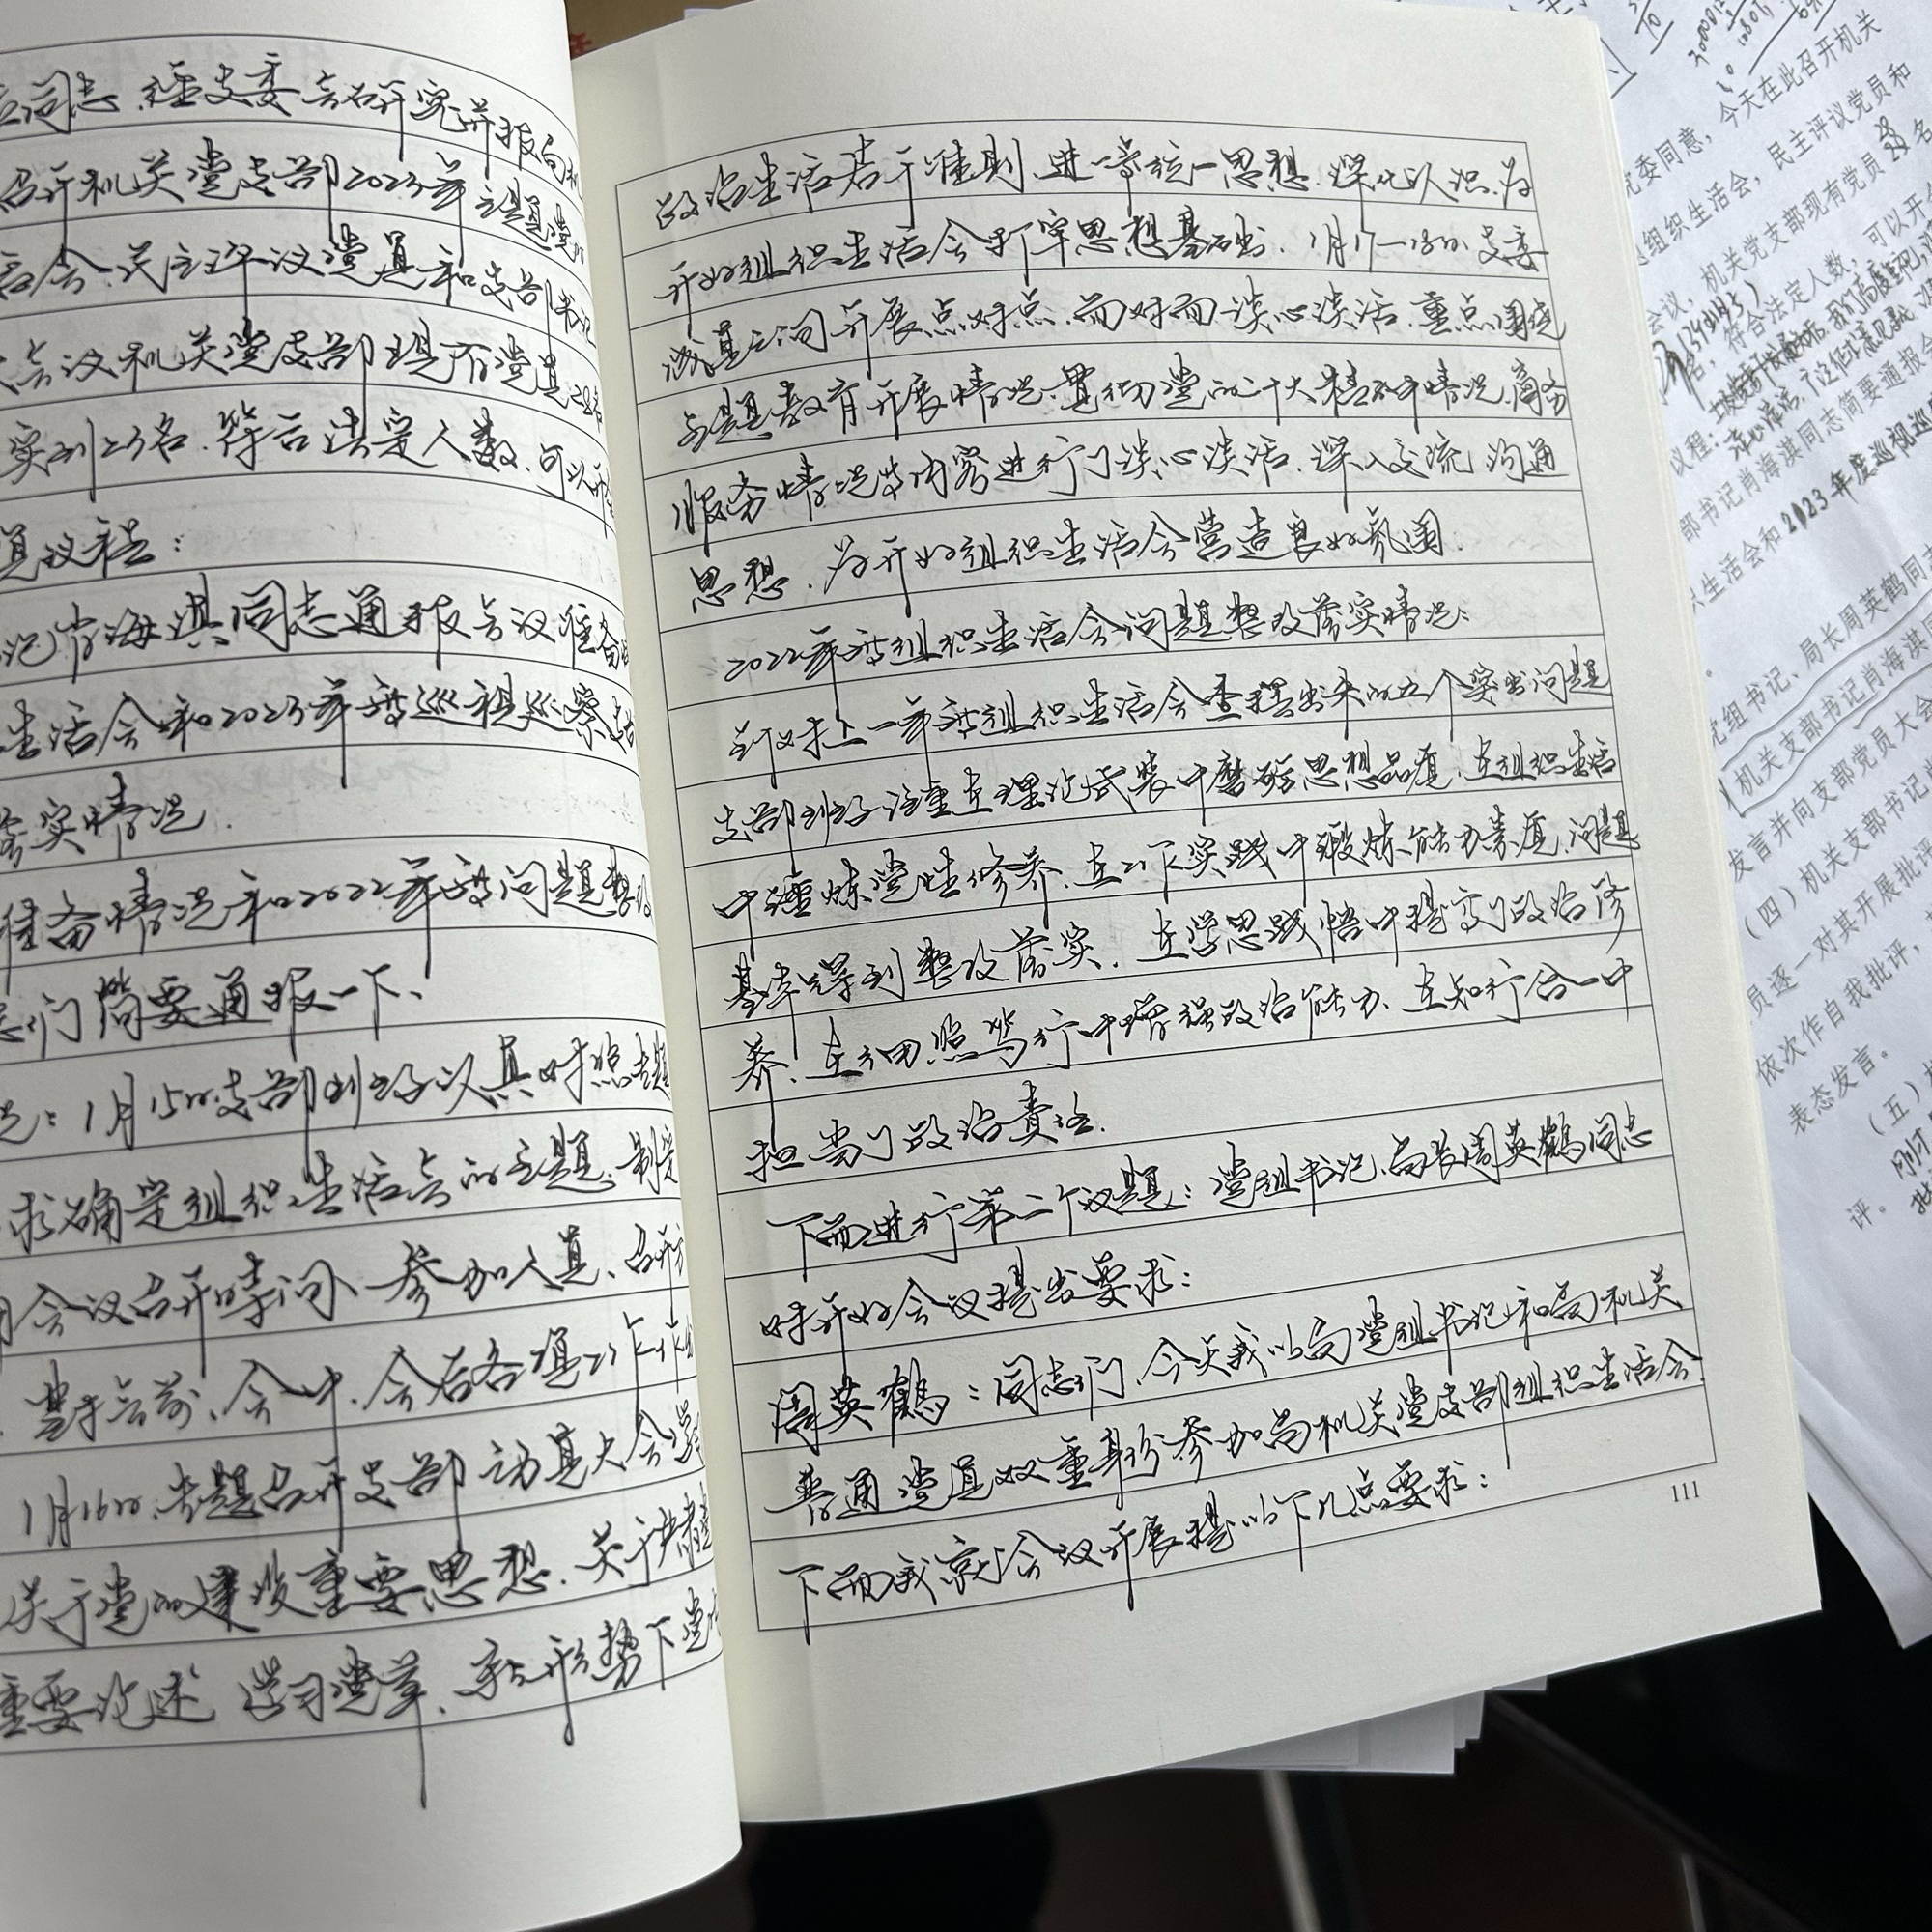 同志,经支委会研究并报局机
召开机关党支部2023年主题党
会、民主评议党员和支部书记
会议机关党支部现有党员28名
实到23名,符合法定人数,可以开
议程:
记肖海淇同志通报会议准备
生活会和2023年度巡视巡察
落实情况.
准备情况和2022年度问题整改
志们简要通报一下、
1月15日支部班子认真对照主题
求确定组织生活会的主题、制定
会议召开时间、参加人员、召开
会前、会中、会后各项工作
1月16日,专题召开支部动员大会学
关于党的建设重要思想、关于
重要论述 学习党章、新形势下党
政治生活若干准则、进一步统一思想、深化认识、为
开好组织生活会打牢思想基础、1月17-18日、支委
成员之间开展点对点、面对面谈心谈话、重点围绕
主题教育开展情况、贯彻党的二十大精神情况、商务
服务情况等内容进行了谈心谈话、深入交流、沟通
思想、为开好组织生活会营造良好氛围.
2022年度组织生活会问题整改落实情况:
针对上一年度组织生活会查摆出来的五个突出问题
支部班子注重在理论武装中磨砺思想品质、在组织生活
中锤炼党性修养、在工作实践中锻炼能力素质、问题
基本得到整改落实、在学思践悟中提高了政治修
养、在细照笃行中增强政治能力、在知行合一中
担当了政治责任.
下面进行第二个议题:党组书记、局长周英鹤同志
对开好会议提出要求:
周英鹤:同志们、今天我以局党组书记和局机关
普通党员双重身份参加局机关党支部组织生活会.
下面我就会议开展提以下几点要求:
111
党委同意,今天在此召开机关
组织生活会,民主评议党员和
会议,机关党支部现有党员28名
名,符合法定人数,可以开
议程:
部书记肖海淇同志简要通报会
织生活会和2023年度巡视巡
党组书记、局长周英鹤同志
机关支部书记肖海淇
发言并向支部党员大会
(四)机关支部书记
员逐一对其开展批评
依次作自我批评,
表态发言。
(五)
评。